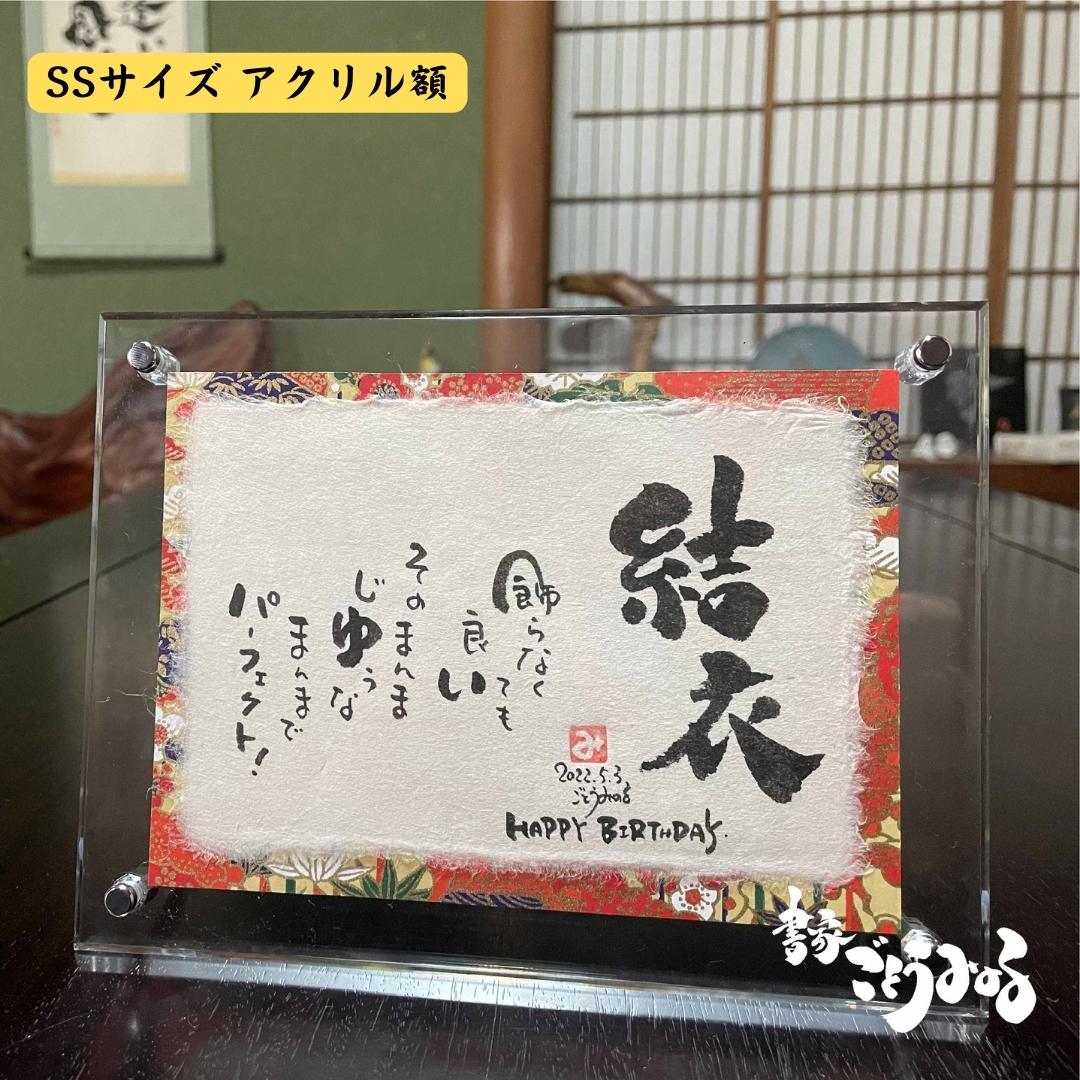 SSサイズ アクリル額
結衣
飾らなく
ても
良い
そのまんま
じゆうな
まんまで
パーフェクト!
み
2022.5.3
ごとうみのる
HAPPY BIRTHDAY.
書家
ごとうみのる